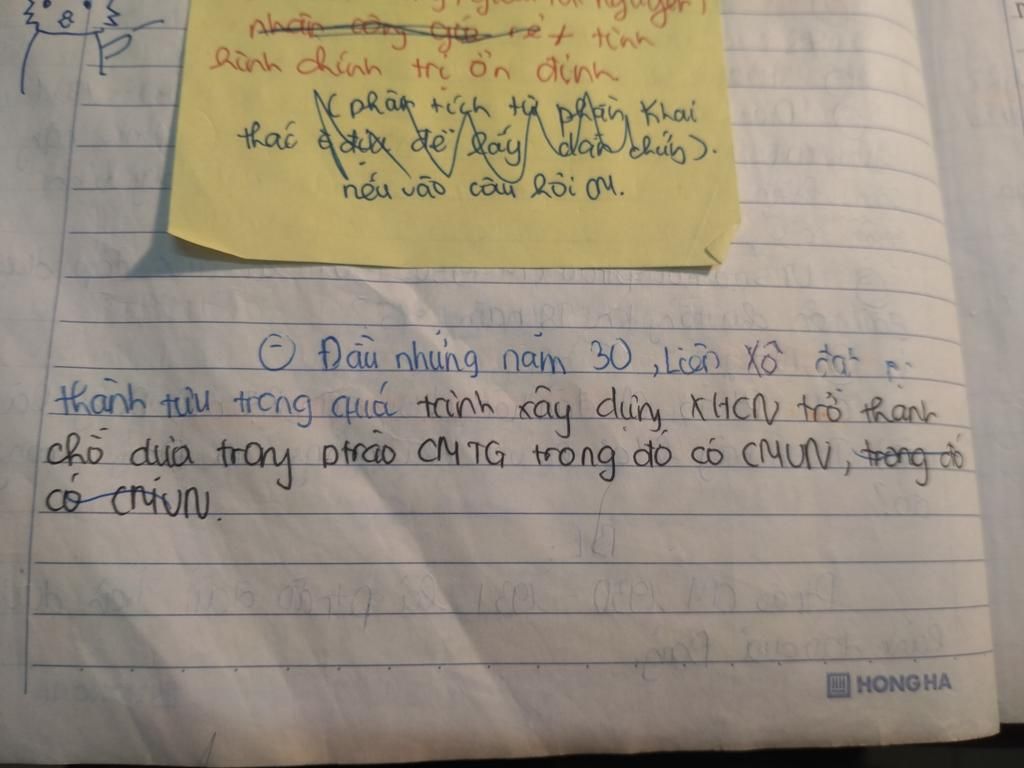 nguồn tài nguyên,
nhân công giá rẻ + tình
hình chính trị ổn định
(phân tích từ phần khai
thác ở đưa để lấy dẫn chứng).
nếu vào câu hỏi CM.
⊖ Đầu những năm 30, Liên Xô đạt
thành tựu trong quá trình xây dựng XHCN trở thanh
chỗ dựa trong ptrào CMTG trong đó có CMVN, trong đó
có CMVN.
HONG HA